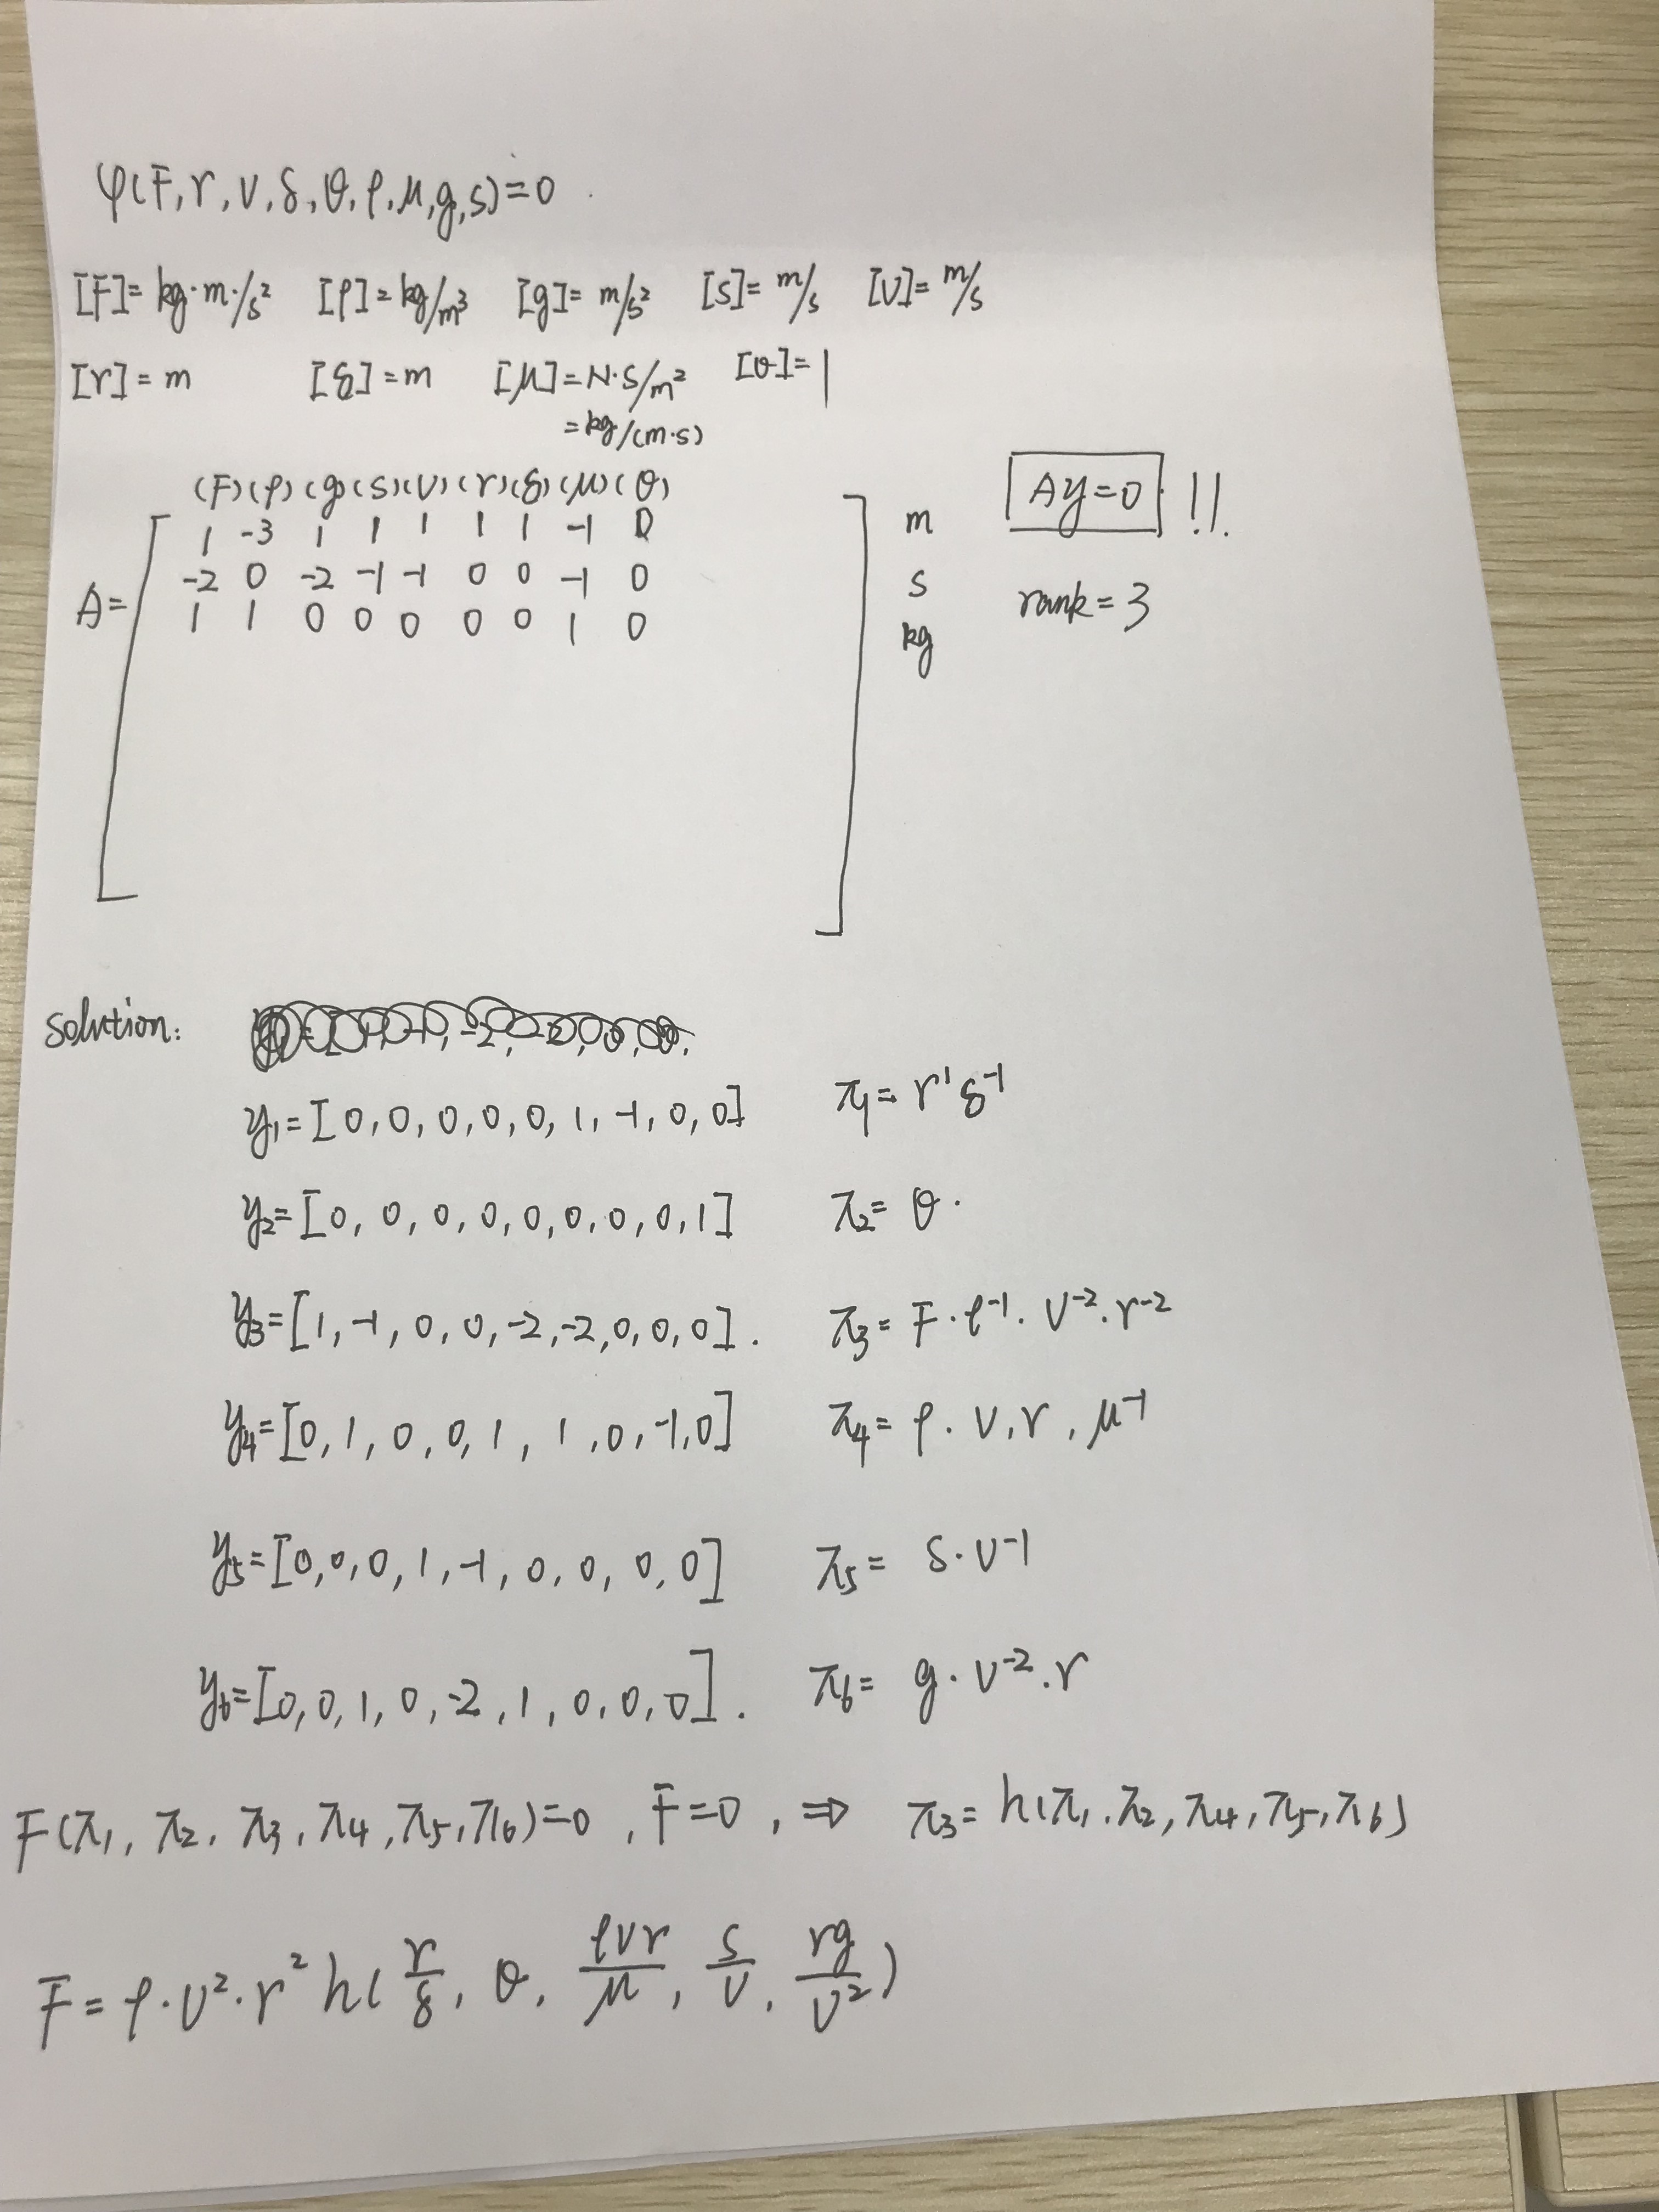 φ(F, r, v, δ, θ, ρ, μ, g, s)=0.
[F]= kg·m·/s² [ρ]=kg/m³ [g]= m/s² [s]= m/s [v]= m/s
[r]= m [δ]=m [μ]=N·S/m² [θ]=1
=kg/(m·s)
(F)(ρ)(g)(s)(v)(r)(δ)(μ)(θ)
1 -3 1 1 1 1 1 -1 0 m
A= -2 0 -2 -1 -1 0 0 -1 0 s
1 1 0 0 0 0 0 1 0 kg
Ay=0 !!.
rank=3
solution:
y₁=[0,0,0,0,0,1,-1,0,0] π₁= r¹δ⁻¹
y₂=[0,0,0,0,0,0,0,0,1] π₂= θ.
y₃=[1,-1,0,0,-2,-2,0,0,0]. π₃= F·ρ⁻¹·v⁻²·r⁻²
y₄=[0,1,0,0,1,1,0,-1,0] π₄= ρ·v,r,μ⁻¹
y₅=[0,0,0,1,-1,0,0,0,0] π₅= s·v⁻¹
y₆=[0,0,1,0,-2,1,0,0,0]. π₆= g·v⁻²·r
F(π₁, π₂, π₃, π₄, π₅, π₆)=0, F=0, ⇒ π₃= h(π₁, π₂, π₄, π₅, π₆)
F=ρ·v²·r² h(r/δ, θ, ρvr/μ, s/v, rg/v²)